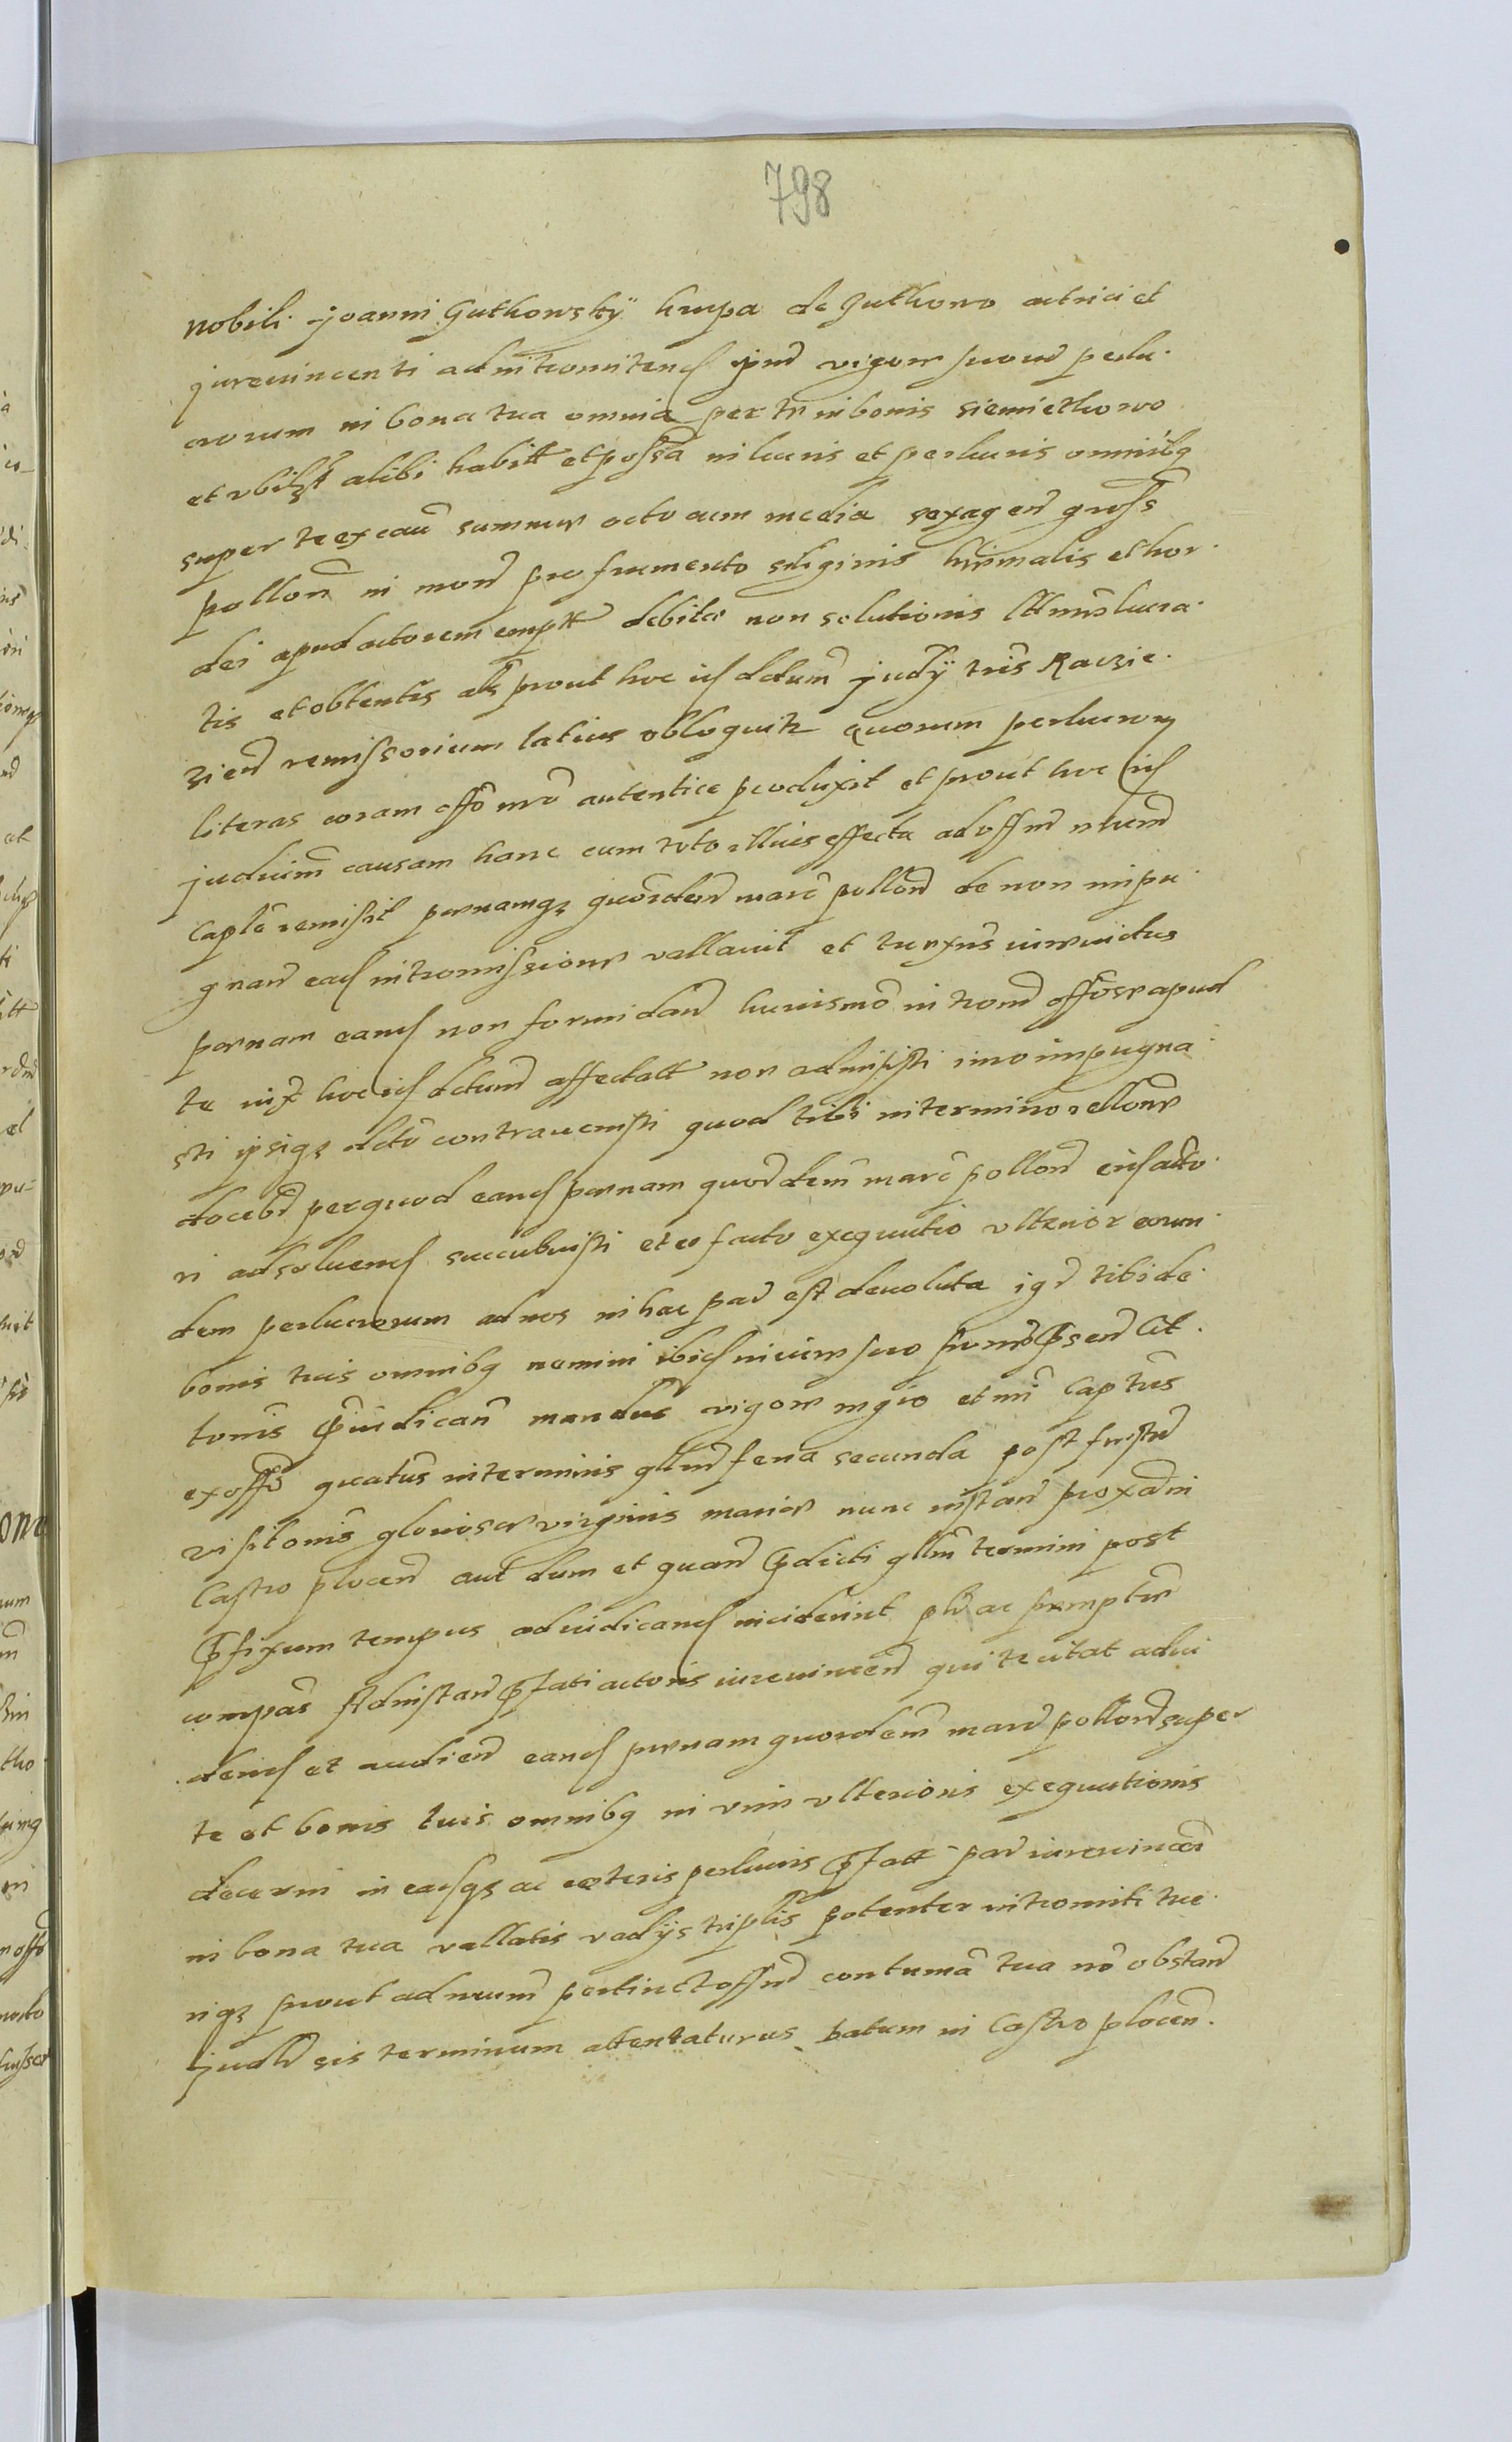 798
Nobili Joanni Guthowsky krupa de Guthowo actrici et
jurevincenti ad intromittend ipm vigore suorum perlu
crorum in bona tua omnia per te in bonis Siemiethowo
et ubilibet alibi habitt et possa in lucris et perlucris omnibq
super te ex caũ summe octo cum media sexagend gross
pollon in mon pro frumento siliginis hyemalis et hor
dei apud actorem empt debite non solutionis lucra
tis et obtentis als prout hoc decretum judy tris Racziε
ziens remissorium latius obloquitr Quorum perlucrorum
literas coram offo nro autentice produxit et prout hoc
judicium causam hanc cum toto illius effectu ad offm nrum
Capte remisit penamqz quordecim marc pollon de non impu
gnand eads intromissione vallavit et tu extns convictus
penam eands non formidand huiusmo introm offose apud
te iuxta hoc decretum affectatt non admisisti imo impugna
sti ipsiqz decto contravenisti quod tibi in termino rellone
docebit per quod eands penam quordecim marc pollon eids acto
ri adsolvends succubuisti et eo facto exequutio ulterior eorun
dem perlucrorum ad nos in hac par est devoluta igr tibi de
bonis tuis omnibq nemini ibids iure suo pnse Cit
tonis pjudicand mandus vigore regio et nri Captus
ex offo quatus in terminis gllm feria secunda post festum
visitonis gloriose virginis marie nunc instand proxa in
Castro plocen aut dum et quand pdicti gllm termini post
pfixum tempus adiudicands inciderint plr ac premptr
compars Ad instand pfati actoris iurevincend qui te citat ad vi
dends et audiend eands penam quordecim marc pollon super
te et bonis tuis omnibq in vim ulterioris exequutionis
decerni in eadsqz ac ceteris perlucris pfatt par iurevincen
in bona tua vallatis vadys triplis potenter intromitti tue
riqz prout ad nrum pertinet offm contuma tua no obstand
judlr sis terminum attentaturus Datum in Castro plocen.